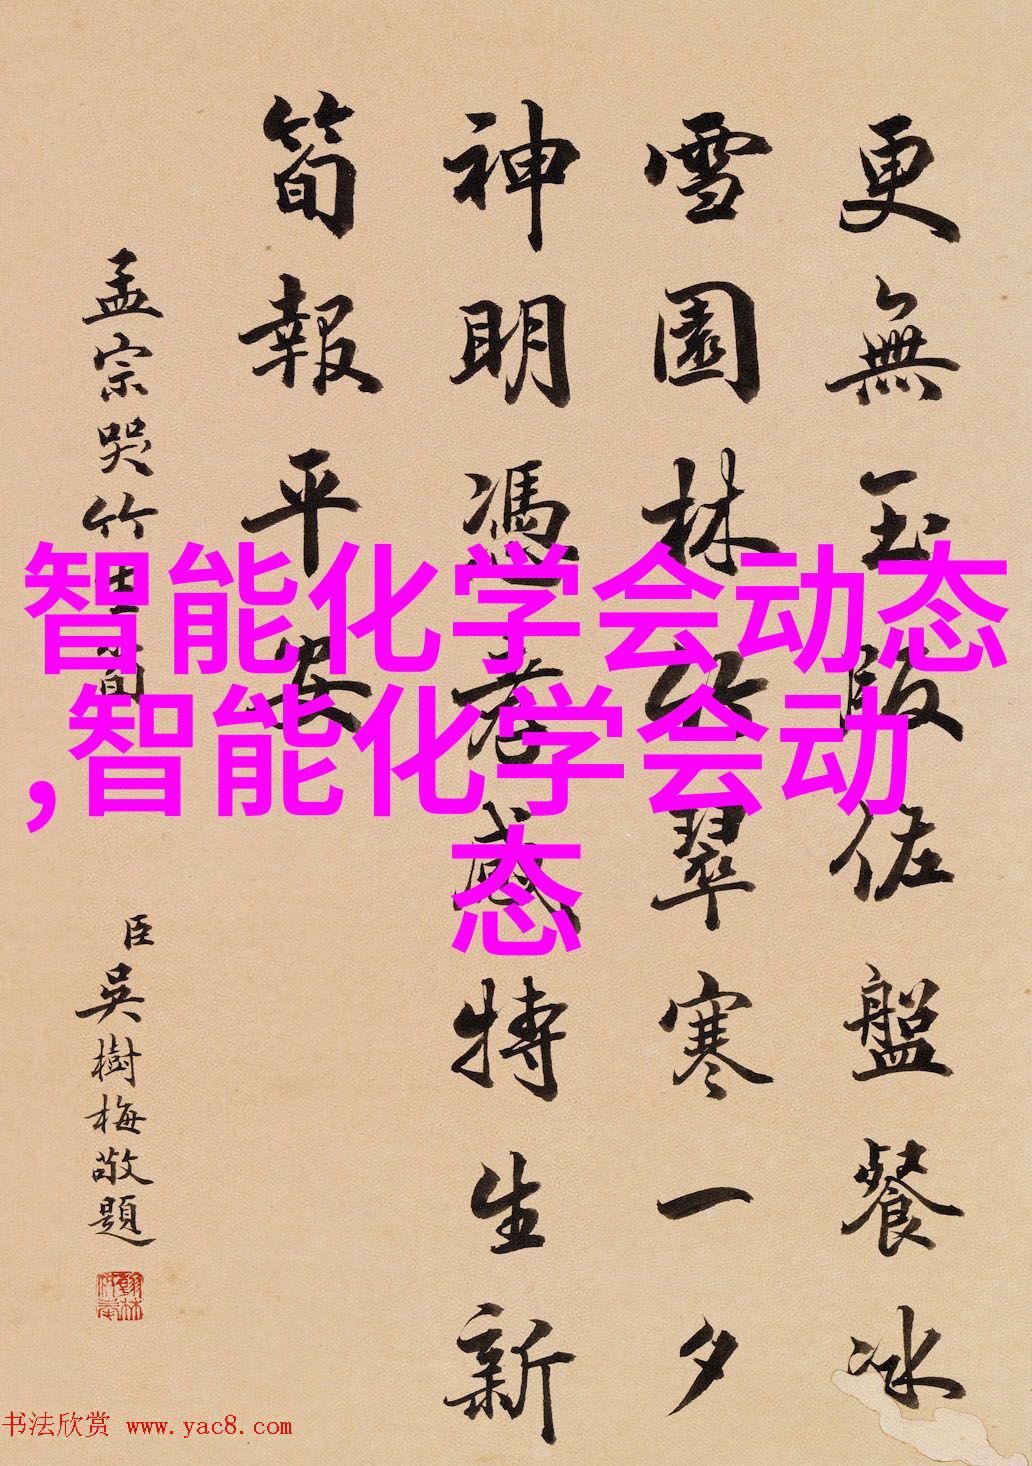 更無玉版佐盤餐冰
雪園林竹翠寒一夕
神明憑孝感特生新
筍報平安
孟宗哭竹生筍
臣吳樹梅敬題
智能化学会动态
,智能化学会动
态
书法欣赏 www.yac8.com